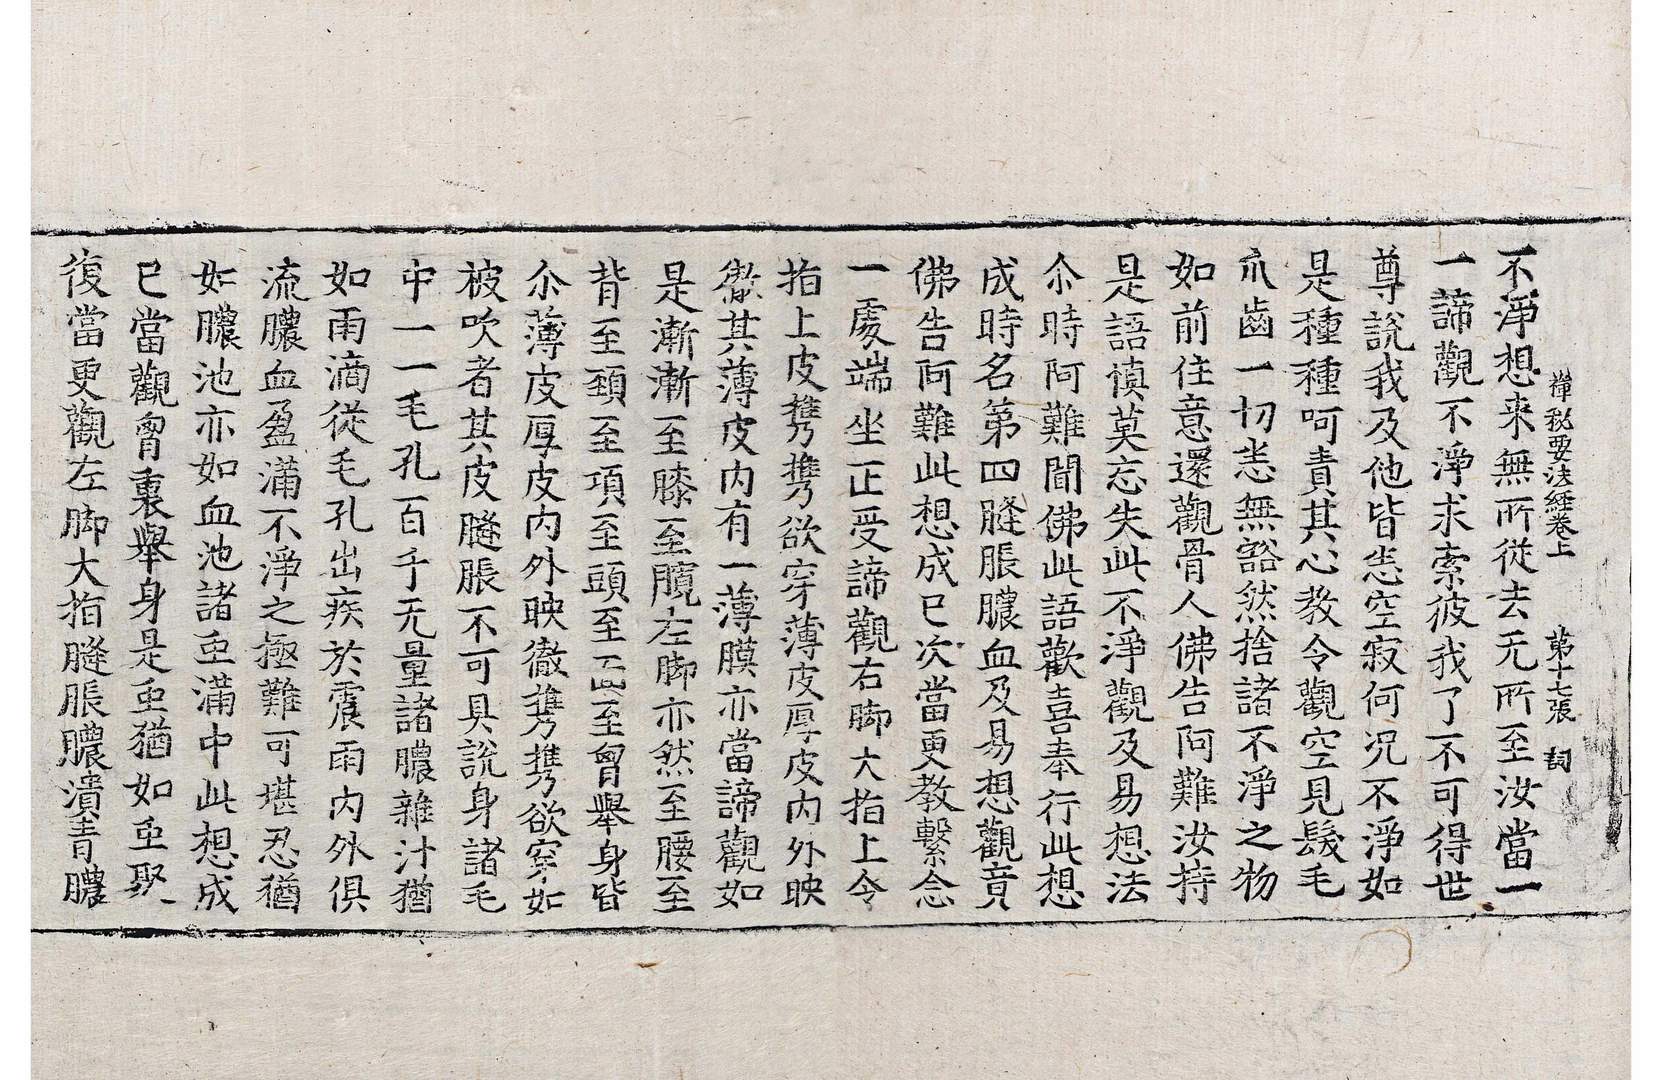 禪秘要法經卷上 第十七張 詞
不淨想来無所從去无所至汝當一
一諦觀不淨求索彼我了不可得世
尊說我及他皆悉空寂何況不淨如
是種種呵責其心教令觀空見髮毛
爪齒一切悉無豁然捨諸不淨之物
如前住意還觀骨人佛告阿難汝持
是語慎莫忘失此不淨觀及易想法
尒時阿難聞佛此語歡喜奉行此想
成時名第四膖脹膿血及易想觀竟
佛告阿難此想成已次當更教繫念
一處端坐正受諦觀右脚大指上令
指上皮㩦㩦欲穿薄皮厚皮內外映
徹其薄皮內有一薄膜亦當諦觀如
是漸漸至膝至髖左脚亦然至腰至
背至頸至項至頭至面至胷舉身皆
尒薄皮厚皮內外映徹㩦㩦欲穿如
被吹者其皮膖脹不可具說身諸毛
中一一毛孔百千无量諸膿雜汁猶
如雨滴從毛孔出疾於震雨內外俱
流膿血盈滿不淨之極難可堪忍猶
如膿池亦如血池諸虫滿中此想成
已當觀胷裏舉身是虫猶如虫聚
復當更觀左脚大指膖脹膿潰青膿